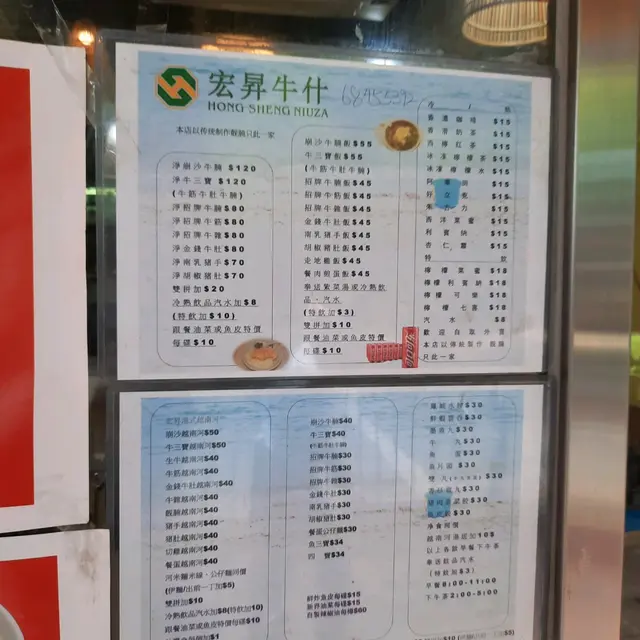 宏昇牛什
HONG SHENG NIUZA
本店以傳統制作靚腩只此一家
淨崩沙牛腩 $120
淨牛三寶 $120
(牛筋牛肚牛腩)
淨招牌牛腩 $80
淨招牌牛筋 $80
淨招牌牛雜 $80
淨金錢牛肚 $80
淨南乳豬手 $70
淨胡椒豬肚 $70
雙拼加 $20
冷熱飲品汽水加 $8
(特飲加 $10)
跟餐油菜或魚皮特價
每碟 $10
崩沙牛腩飯 $55
牛三寶飯 $55
(牛筋牛肚牛腩)
招牌牛腩飯 $45
招牌牛筋飯 $45
招牌牛雜飯 $45
金錢牛肚飯 $45
南乳豬手飯 $45
胡椒豬肚飯 $45
走地雞飯 $45
餐肉煎蛋飯 $45
奉送紫菜湯或冷熱飲
品、汽水
(特飲加 $3)
雙拼加 $10
跟餐油菜或魚皮特價
每碟 $10
冷 / 熱
香濃咖啡 $15
香滑奶茶 $15
西檸紅茶 $15
冰凍檸檬茶 $15
冰凍檸檬水 $15
$15
好立克 $15
$15
西洋菜蜜 $15
利賓納 $15
杏仁霜 $15
特 飲
檸檬菜蜜 $18
檸檬利賓納 $18
檸檬可樂 $18
檸檬七喜 $18
汽水 $8
歡迎自取外賣
本店以傳統製作靚腩
只此一家
崩沙越南河 $50
牛三寶越南河 $50
生牛越南河 $40
牛筋越南河 $40
金錢牛肚越南河 $40
牛雜越南河 $40
越南河 $40
豬手越南河 $40
豬肚越南河 $40
切雞越南河 $40
餐蛋越南河 $40
河米麵米線、公仔麵同價
(伊麵/出前一丁加$5)
雙拼加 $10
冷熱飲品汽水加$8(特飲加10)
跟餐油菜或魚皮特價每碟 $10
崩沙牛腩 $40
牛三寶 $40
招牌牛腩 $30
招牌牛筋 $30
招牌牛雜 $30
金錢牛肚 $30
南乳豬手 $30
胡椒豬肚 $30
餐蛋公仔麵 $30
魚三寶 $34
四寶 $34
鮮炸魚皮每碟 $15
新界油菜每碟 $15
自製辣椒油每樽 $60
$30
$30
$30
牛丸 $30
魚蛋 $30
魚片頭 $30
$30
$30
$30
$30
淨食同價
越南河湯底加10$
以上各款早餐下午茶
奉送飲品汽水
(特飲加 $3)
早餐8:00-11:00
下午茶2:00-5:00